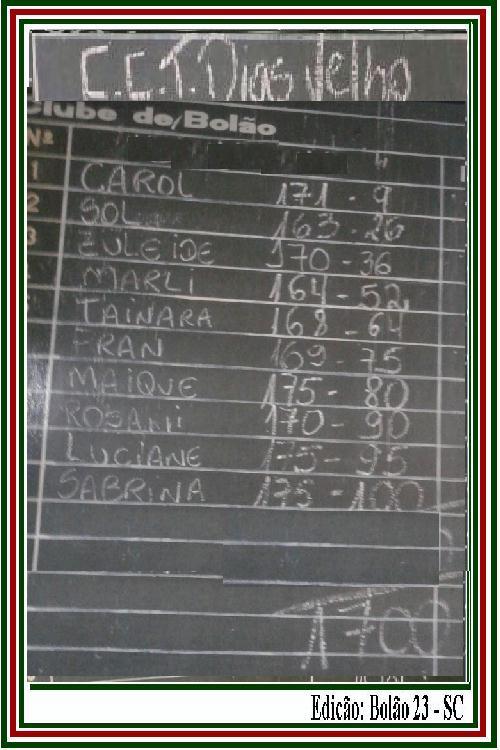 C.C.T. Dias Velho
Clube de Bolão
Nº
1 CAROL 171 - 9
2 SOL 163 - 26
3 ZULEIDE 170 - 36
MARLI 164 - 52
TAINARA 168 - 64
FRAN 169 - 75
MAIQUE 175 - 80
ROSANI 170 - 90
LUCIANE 175 - 95
SABRINA 175 - 100
1700
Edicão: Bolão 23 - SC